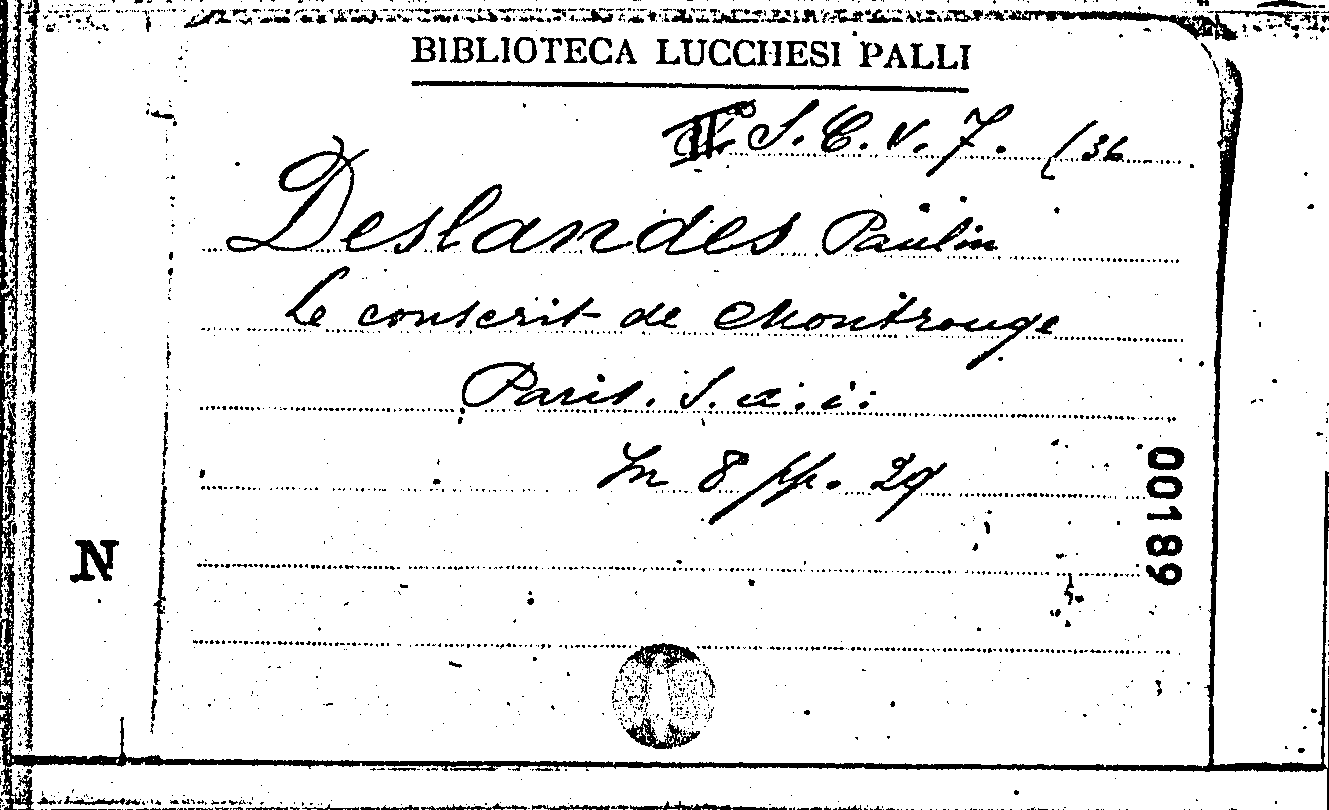 BIBLIOTECA LUCCHESI PALLI
S. C. V. 7. (36
Deslandes Paulin
Le conscrit de Montrouge
Paris. S. a. i.
In 8 pp. 29
00189
N